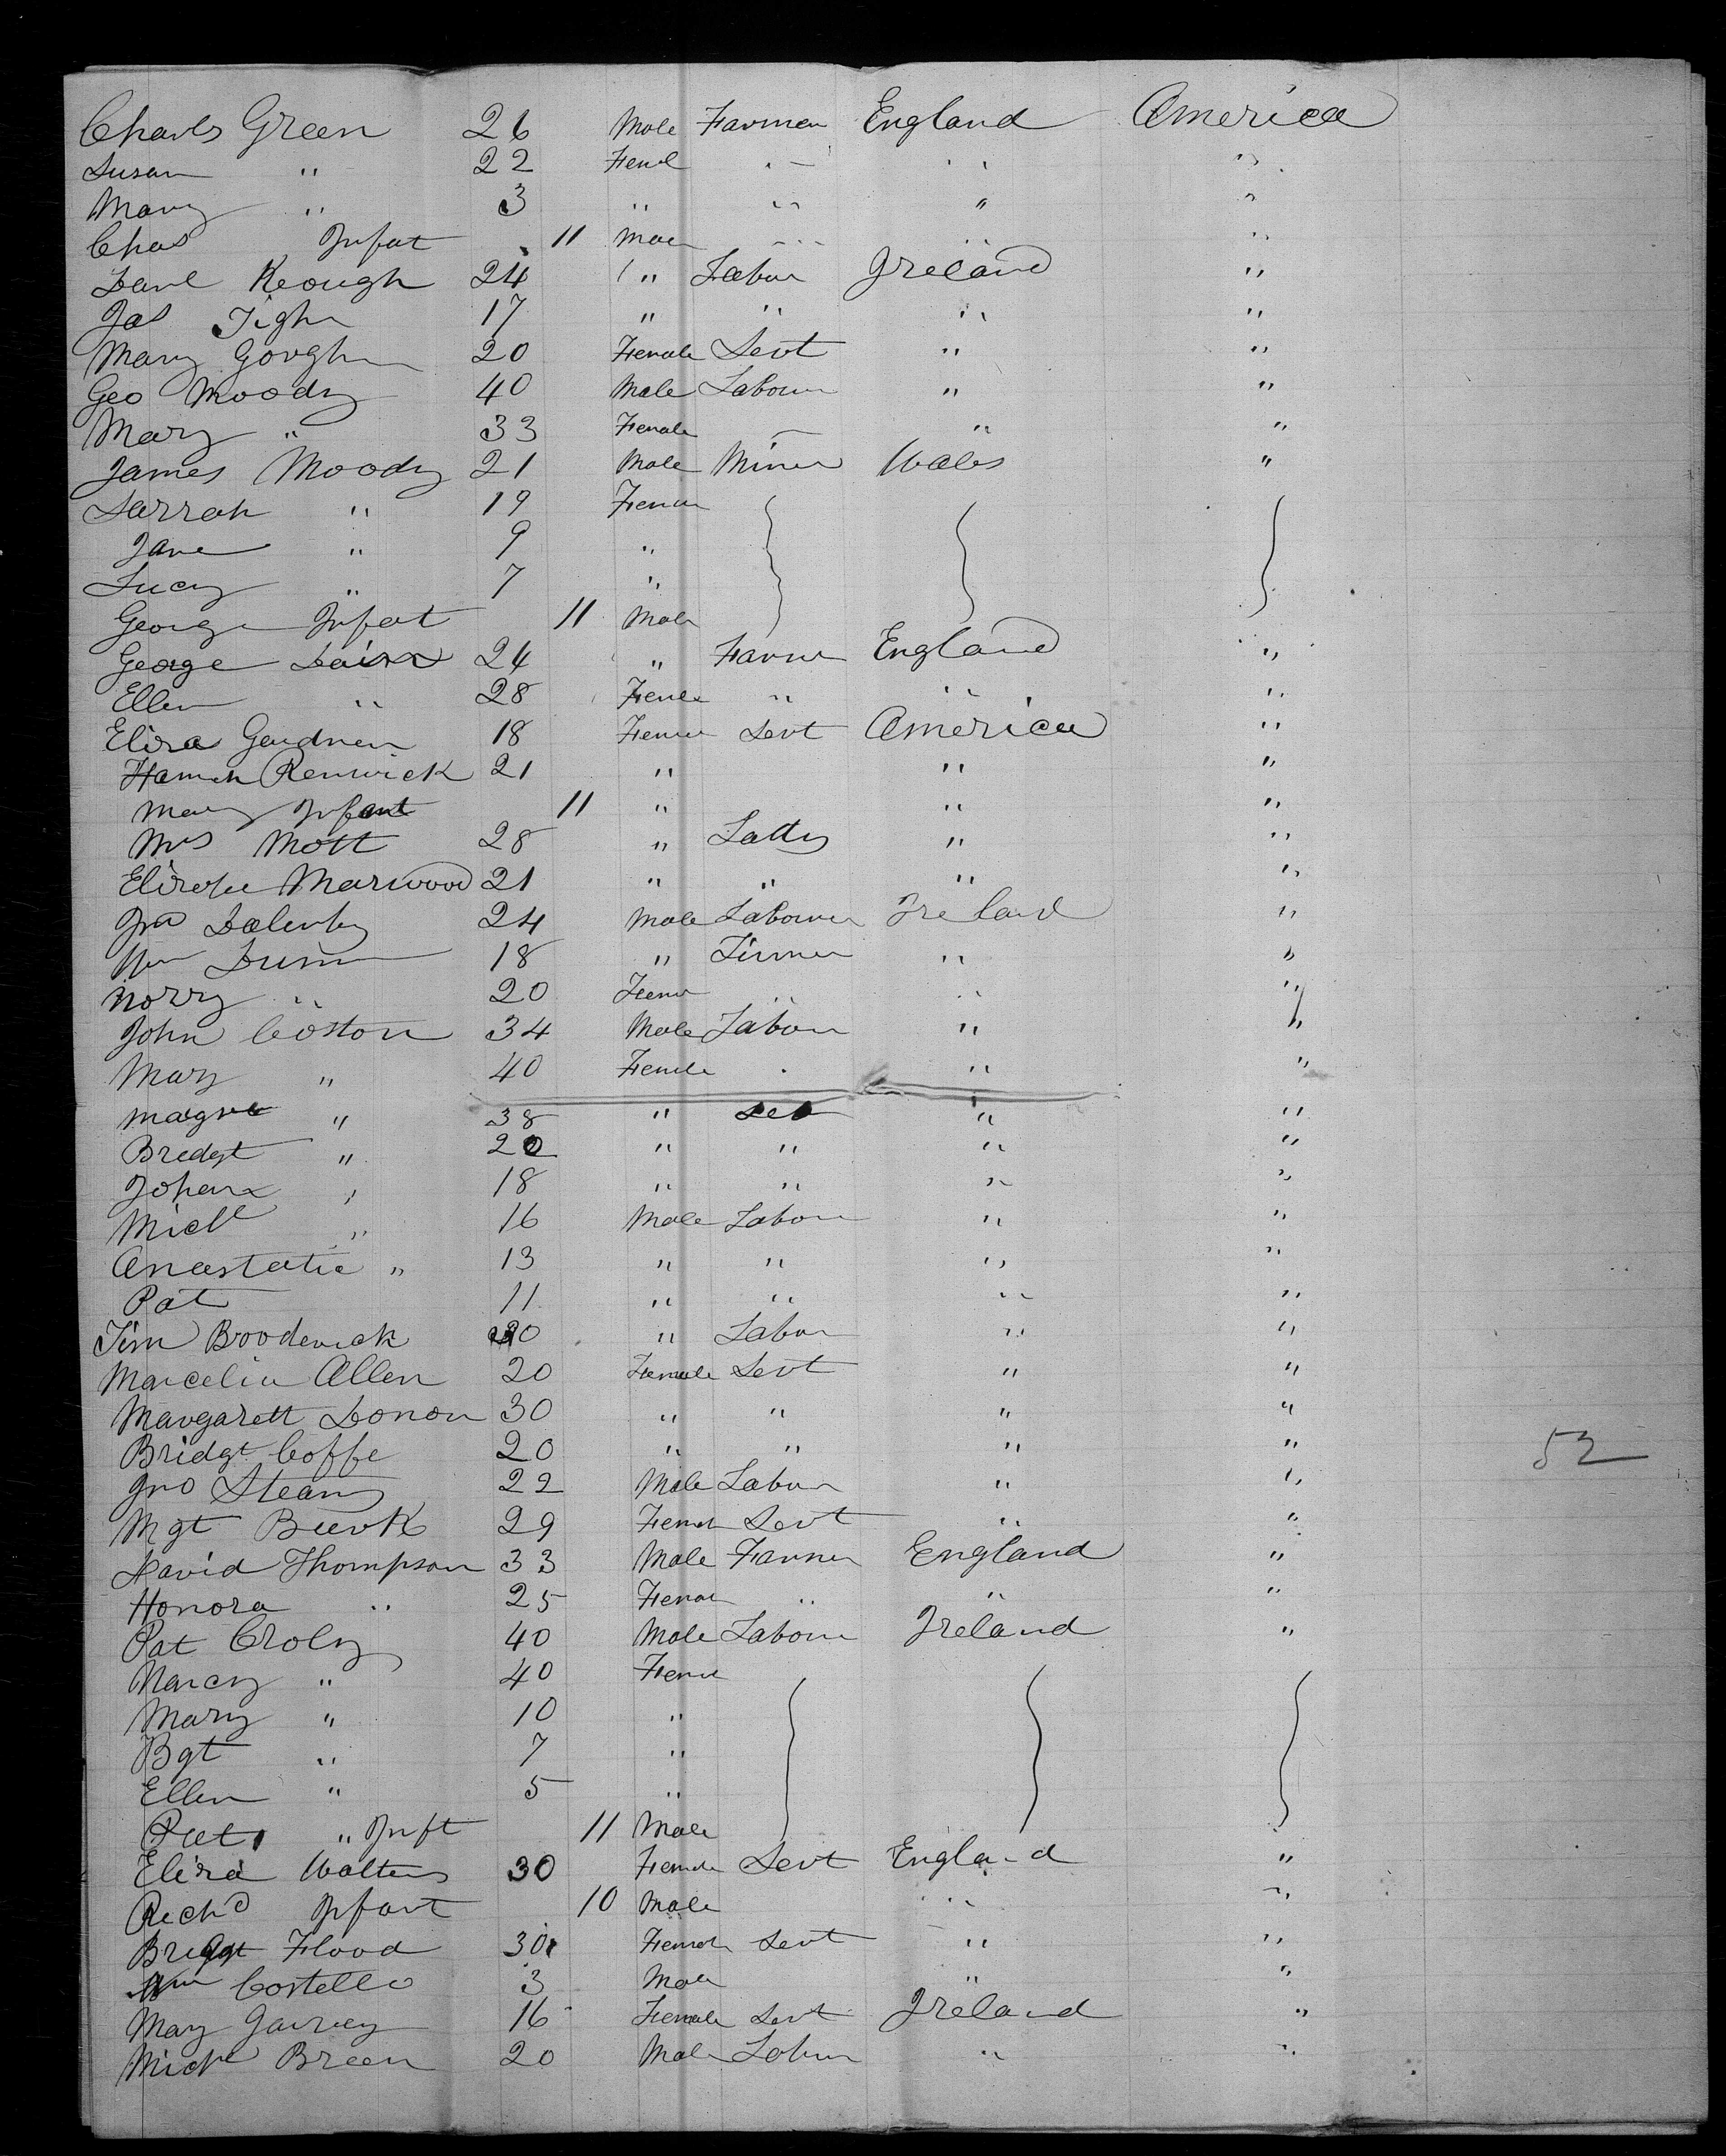 Charls Green 26 Male Farmer England America
Susan " 22 Feml " " "
Mary " 3 " " " "
Chas Infat 11 Male " " "
Danl Keough 24 " Labur Ireland "
Jas Tighe 17 " " " "
Mary Goughn 20 Female Sevt " "
Geo Moody 40 Male Labour " "
Mary " 33 Female " "
James Moody 21 Male Miner Wales "
Sarrah " 19 Femal
Jane " 9 "
Lucy " 7 "
George Infat 11 Male
George 24 " Farmer England "
Ellen " 28 Femle " " "
Eliza Gardner 18 Femle Sevt America "
Hannah Renwick 21 " " "
Mary Infant 11 " " "
Mrs Mott 28 " Lady " "
Marwood 21 " " " "
Jno 24 Male Labourer Ireland "
Wm Dunn 18 " " "
Norry " 20 Femle " " "
John Coston 34 Male Labour " "
Mary " 40 Femle " "
" 38 " " "
Bredgt " 20 " " " "
Johana " 18 " " " "
Michl " 16 Male Labour " "
Anastatia " 13 " " " "
Pat 11 " " " "
Tim Brooderick " Labur " "
Marcelia Allen 20 Female Sevt " "
Margarett Donon 30 " " " "
Bridgt Coffe 20 " " " " 52
Jno Steam 22 Male Labur " "
Mgt Buerk 29 Femle Sevt " "
David Thompson 33 Male Farmer England "
Honora " 25 Femal " " "
Pat Croly 40 Male Labour Ireland "
Nancy " 40 Femle
Mary " 10 "
Bgt " 7 "
Ellen " 5 "
Pat " Inft 11 Male
Eliza Walters 30 Female Sevt England "
Rechd Infant 10 Male " "
Bredgt Flood 30 Female Sevt " "
Wm Costello 3 Male " "
Mary Garvey 16 Female Sevt Ireland "
Michl Breen 20 Male Labur " "